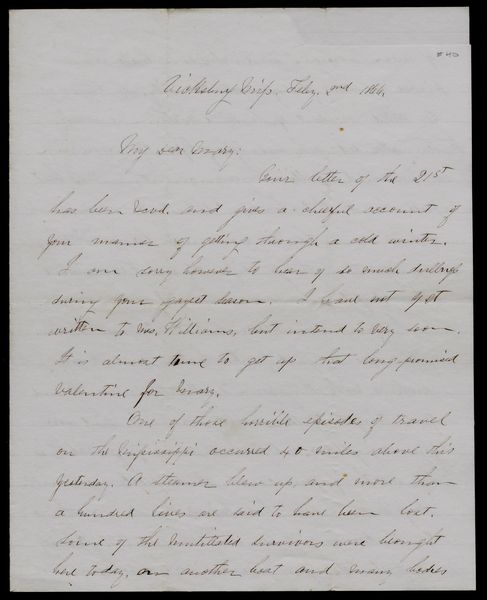 #40
Vicksburg Miss. Feby. 2nd 1866.
My dear Mary:
Your letter of the 21st
has been recvd. and gives a cheerful account of
your manner of getting through a cold winter.
I am sorry however to hear of so much
during your gayest season. I have not yet
written to Mrs. Williams, but intend to very soon.
It is almost time to get up that long promised
Valentine for Mary.
One of those horrible episodes of travel
on the Mississippi occurred 40 miles above this
yesterday. A steamer blew up and more than
a hundred lives are said to have been lost.
Some of the mutilated survivors were brought
here today, on another boat and many bodies